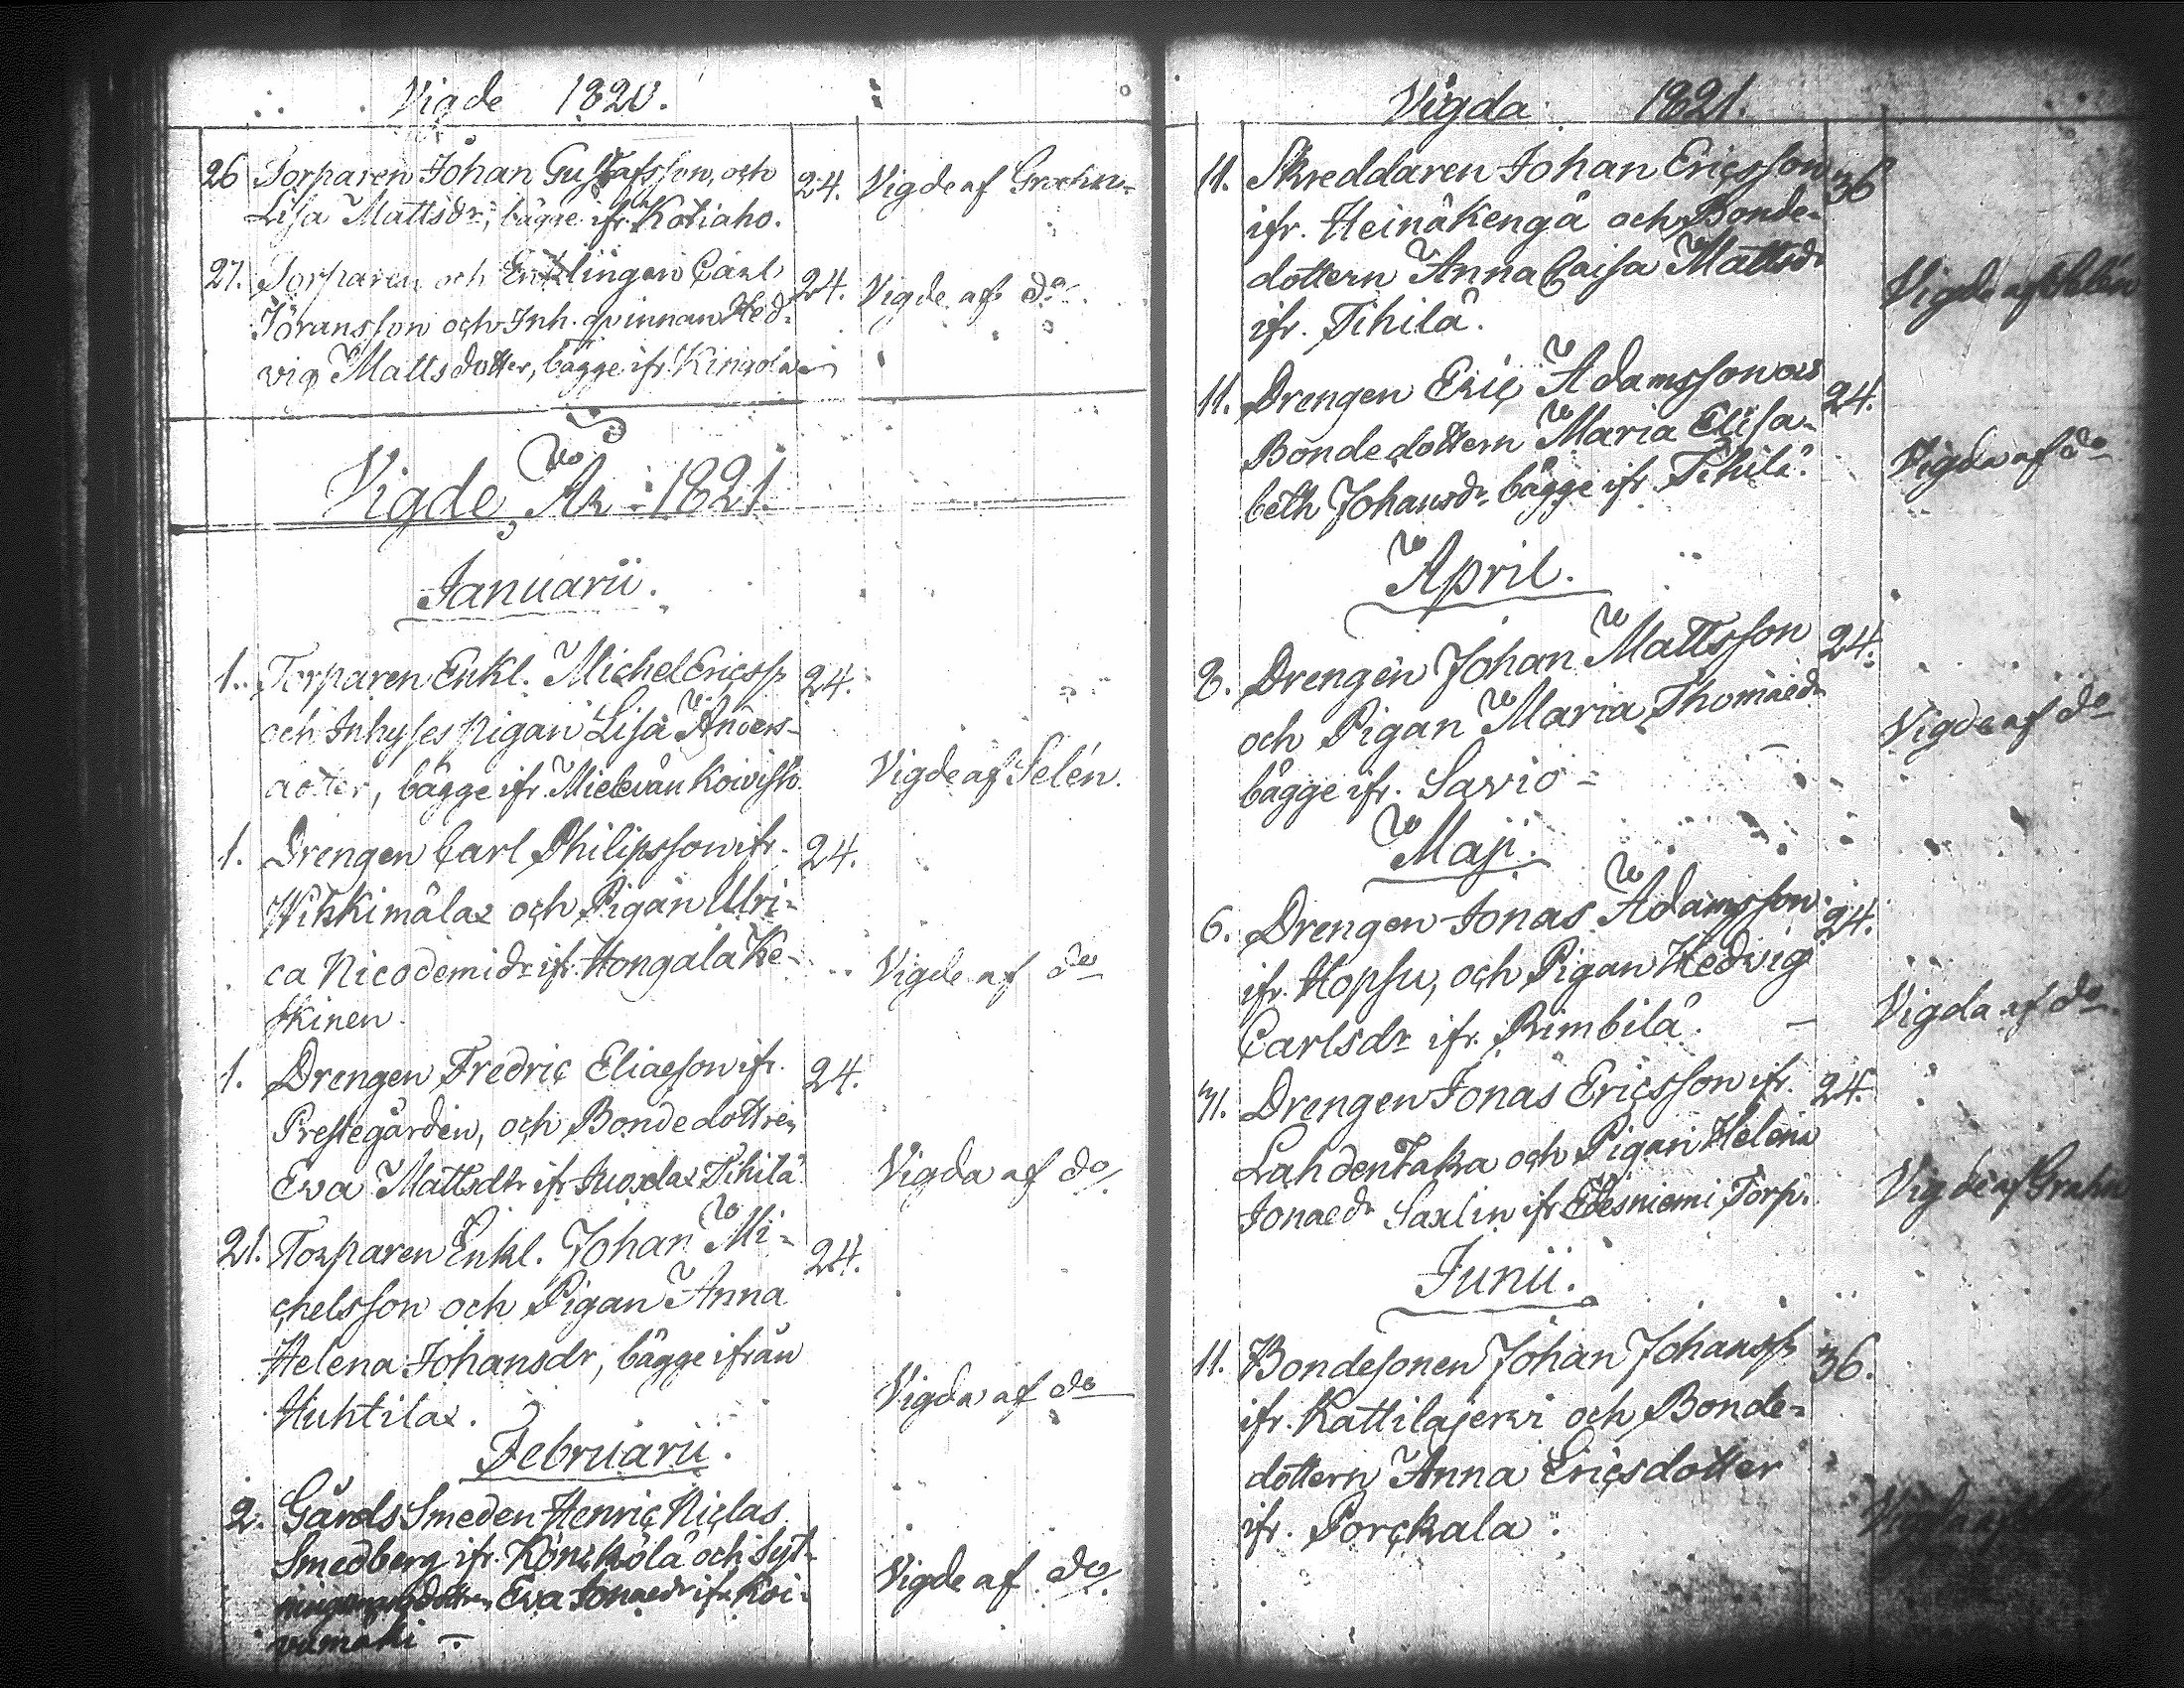 Vigde 1820.
26 Torparen Johan Gustafsson, och 24. Vigde af Grahn
Lisa Mattsdr, bägge ifr. Kotiaho.
27. Torparen och Enklingen Carl 24. Vigde af do
Jöransson och Inh. qvinnan Hed-
vig Mattsdotter, bägge ifr.
Vigde, År 1821.
Januarii.
1. Torparen Enkl. Michel Ericss. 24.
och Inhyses pigan Lisa Anders-
dotter, bägge ifr. Vigde af Selén.
1. Drengen Carl Philipsson ifr. 24.
och Pigan Ulri-
ca Nicodemidr ifr. Hongala Ke- Vigde af do
skinen
1. Drengen Fredric Eliaesson ifr. 24.
Prestegården, och Bondedottren
Eva Mattsdtr ifr. Tihilä. Vigda af do
21. Torparen Enkl. Johan Mi- 24.
chelsson och Pigan Anna
Helena Johansdr, bägge ifrån
Huhtilax. Vigda af do
Februarii.
2. Gårds Smeden Henric Niclas
Smedberg ifr. Könckölä och Syt-
Eva Jonaedr ifr. Koi- Vigde af do
vumäki
Vigda 1821.
11. Skreddaren Johan Ericsson 36
ifr. Heinäkengä och Bonde-
dottern Anna Caisa Mattsdr
ifr. Tihilä. Vigde af Selén
11. Drengen Eric Adamsson och 24.
Bondedottern Maria Elisa-
beth Johansdr bägge ifr. Tihilä. Vigda af do
April.
8. Drengen Johan Mattsson 24.
och Pigan Maria Thomaedr
bägge ifr. Savio Vigde af do
Maji.
6. Drengen Jonas Adamsson 24.
ifr. Hopsu, och Pigan Hedvig
Carlsdr ifr. Rimbilä. Vigda af do
31. Drengen Jonas Ericsson ifr. 24.
Lahdentaka och Pigan Helena
Jonaedr Saxlin ifr. Edesniemi Torp. Vigde af Grahn
Junii.
11. Bondesonen Johan Johanss. 36.
ifr. Kattilajerwi och Bonde-
dottern Anna Ericsdotter
ifr. Porckala. Vigda af